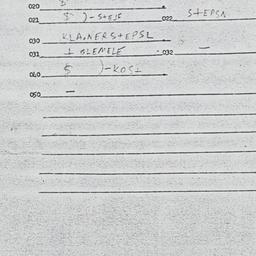 020
021 $ )-STEPS 022 STEPSN
030 KLAINERSTEPSL
031 I BLEMELE 032 —
040 $ )-KOST
050 —